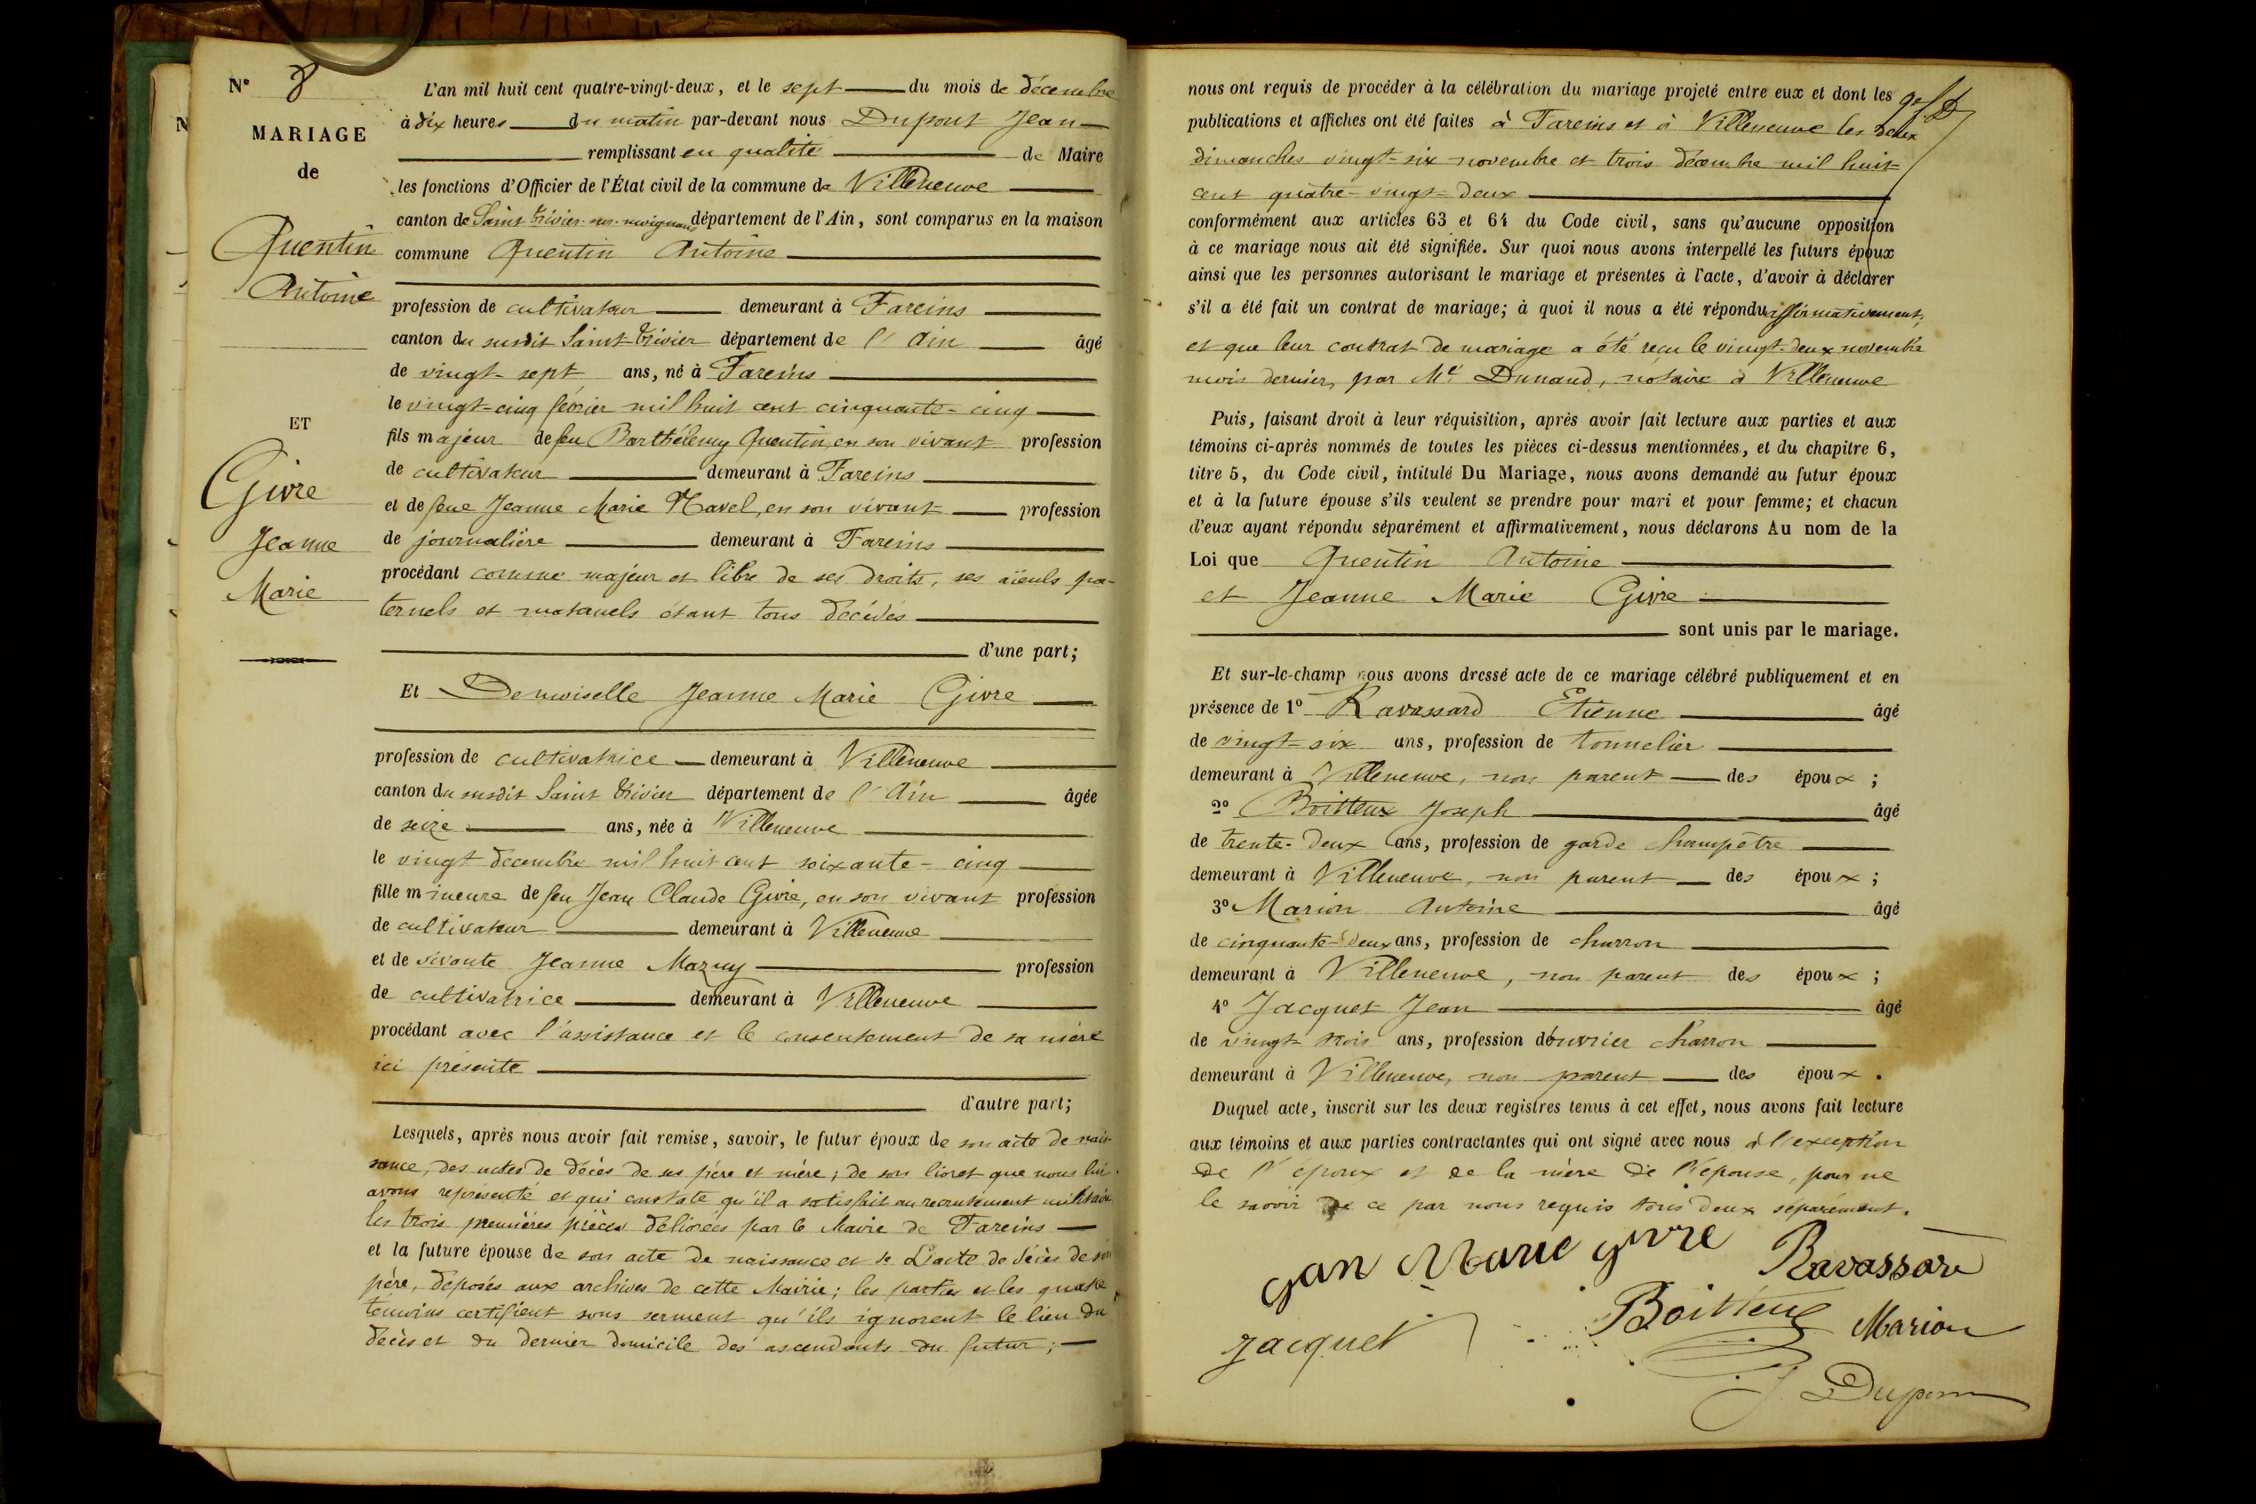 N° 8
MARIAGE
de
Quentin
Antoine
ET
Givre
Jeanne
Marie
L'an mil huit cent quatre-vingt-deux, et le sept du mois de décembre
à dix heures du matin par-devant nous Dupont Jean
remplissant en qualité de Maire
les fonctions d'Officier de l'État civil de la commune de Villeneuve
canton de Saint-Trivier-sur-moignans département de l'Ain, sont comparus en la maison
commune Quentin Antoine
profession de cultivateur demeurant à Fareins
canton du susdit Saint-Trivier département de l'Ain âgé
de vingt-sept ans, né à Fareins
le vingt-cinq février mil huit cent cinquante-cinq
fils majeur de feu Barthélemy Quentin, en son vivant profession
de cultivateur demeurant à Fareins
et de feue Jeanne Marie Navel, en son vivant profession
de journalière demeurant à Fareins
procédant comme majeur et libre de ses droits, ses aïeuls pa-
ternels et maternels étant tous décédés
d'une part;
Et Demoiselle Jeanne Marie Givre
profession de cultivatrice demeurant à Villeneuve
canton du susdit Saint Trivier département de l'Ain âgée
de seize ans, née à Villeneuve
le vingt décembre mil huit cent soixante-cinq
fille mineure de feu Jean Claude Givre, en son vivant profession
de cultivateur demeurant à Villeneuve
et de vivante Jeanne Mazuy profession
de cultivatrice demeurant à Villeneuve
procédant avec l'assistance et le consentement de sa mère
ici présente
d'autre part;
Lesquels, après nous avoir fait remise, savoir, le futur époux de son acte de nais-
sance, des actes de décès de ses père et mère; de son livret que nous lui
avons représenté et qui constate qu'il a satisfait au recrutement militaire
les trois premières pièces délivrées par le Maire de Fareins
et la future épouse de son acte de naissance et de L'acte de décès de son
père, déposés aux archives de cette Mairie; les parties et les quatre
témoins certifient sous serment qu'ils ignorent le lieu du
décès et du dernier domicile des ascendants du futur;
nous ont requis de procéder à la célébration du mariage projeté entre eux et dont les
publications et affiches ont été faites à Fareins et à Villeneuve les deux
dimanches vingt-six novembre et trois décembre mil huit-
cent quatre-vingt-deux
conformément aux articles 63 et 64 du Code civil, sans qu'aucune opposition
à ce mariage nous ait été signifiée. Sur quoi nous avons interpellé les futurs époux
ainsi que les personnes autorisant le mariage et présentes à l'acte, d'avoir à déclarer
s'il a été fait un contrat de mariage; à quoi il nous a été répondu affirmativement,
et que leur contrat de mariage a été reçu le vingt-deux novembre
mois dernier, par Me Dunand, notaire à Villeneuve
Puis, faisant droit à leur réquisition, après avoir fait lecture aux parties et aux
témoins ci-après nommés de toutes les pièces ci-dessus mentionnées, et du chapitre 6,
titre 5, du Code civil, intitulé Du Mariage, nous avons demandé au futur époux
et à la future épouse s'ils veulent se prendre pour mari et pour femme; et chacun
d'eux ayant répondu séparément et affirmativement, nous déclarons Au nom de la
Loi que Quentin Antoine
et Jeanne Marie Givre
sont unis par le mariage.
Et sur-le-champ nous avons dressé acte de ce mariage célébré publiquement et en
présence de 1° Ravassard Etienne âgé
de vingt-six ans, profession de tonnelier
demeurant à Villeneuve, non parent des époux;
2° Boitteux Joseph âgé
de trente-deux ans, profession de garde champêtre
demeurant à Villeneuve, non parent des époux;
3° Marion Antoine âgé
de cinquante-deux ans, profession de charron
demeurant à Villeneuve, non parent des époux;
4° Jacquet Jean âgé
de vingt-trois ans, profession d'ouvrier charron
demeurant à Villeneuve, non parent des époux.
Duquel acte, inscrit sur les deux registres tenus à cet effet, nous avons fait lecture
aux témoins et aux parties contractantes qui ont signé avec nous à l'exception
de l'époux et de la mère de l'épouse, pour ne
le savoir de ce par nous requis tous deux séparément.
gan Marie givre Ravassard
Boitteux Marion
jacquet
J Dupont